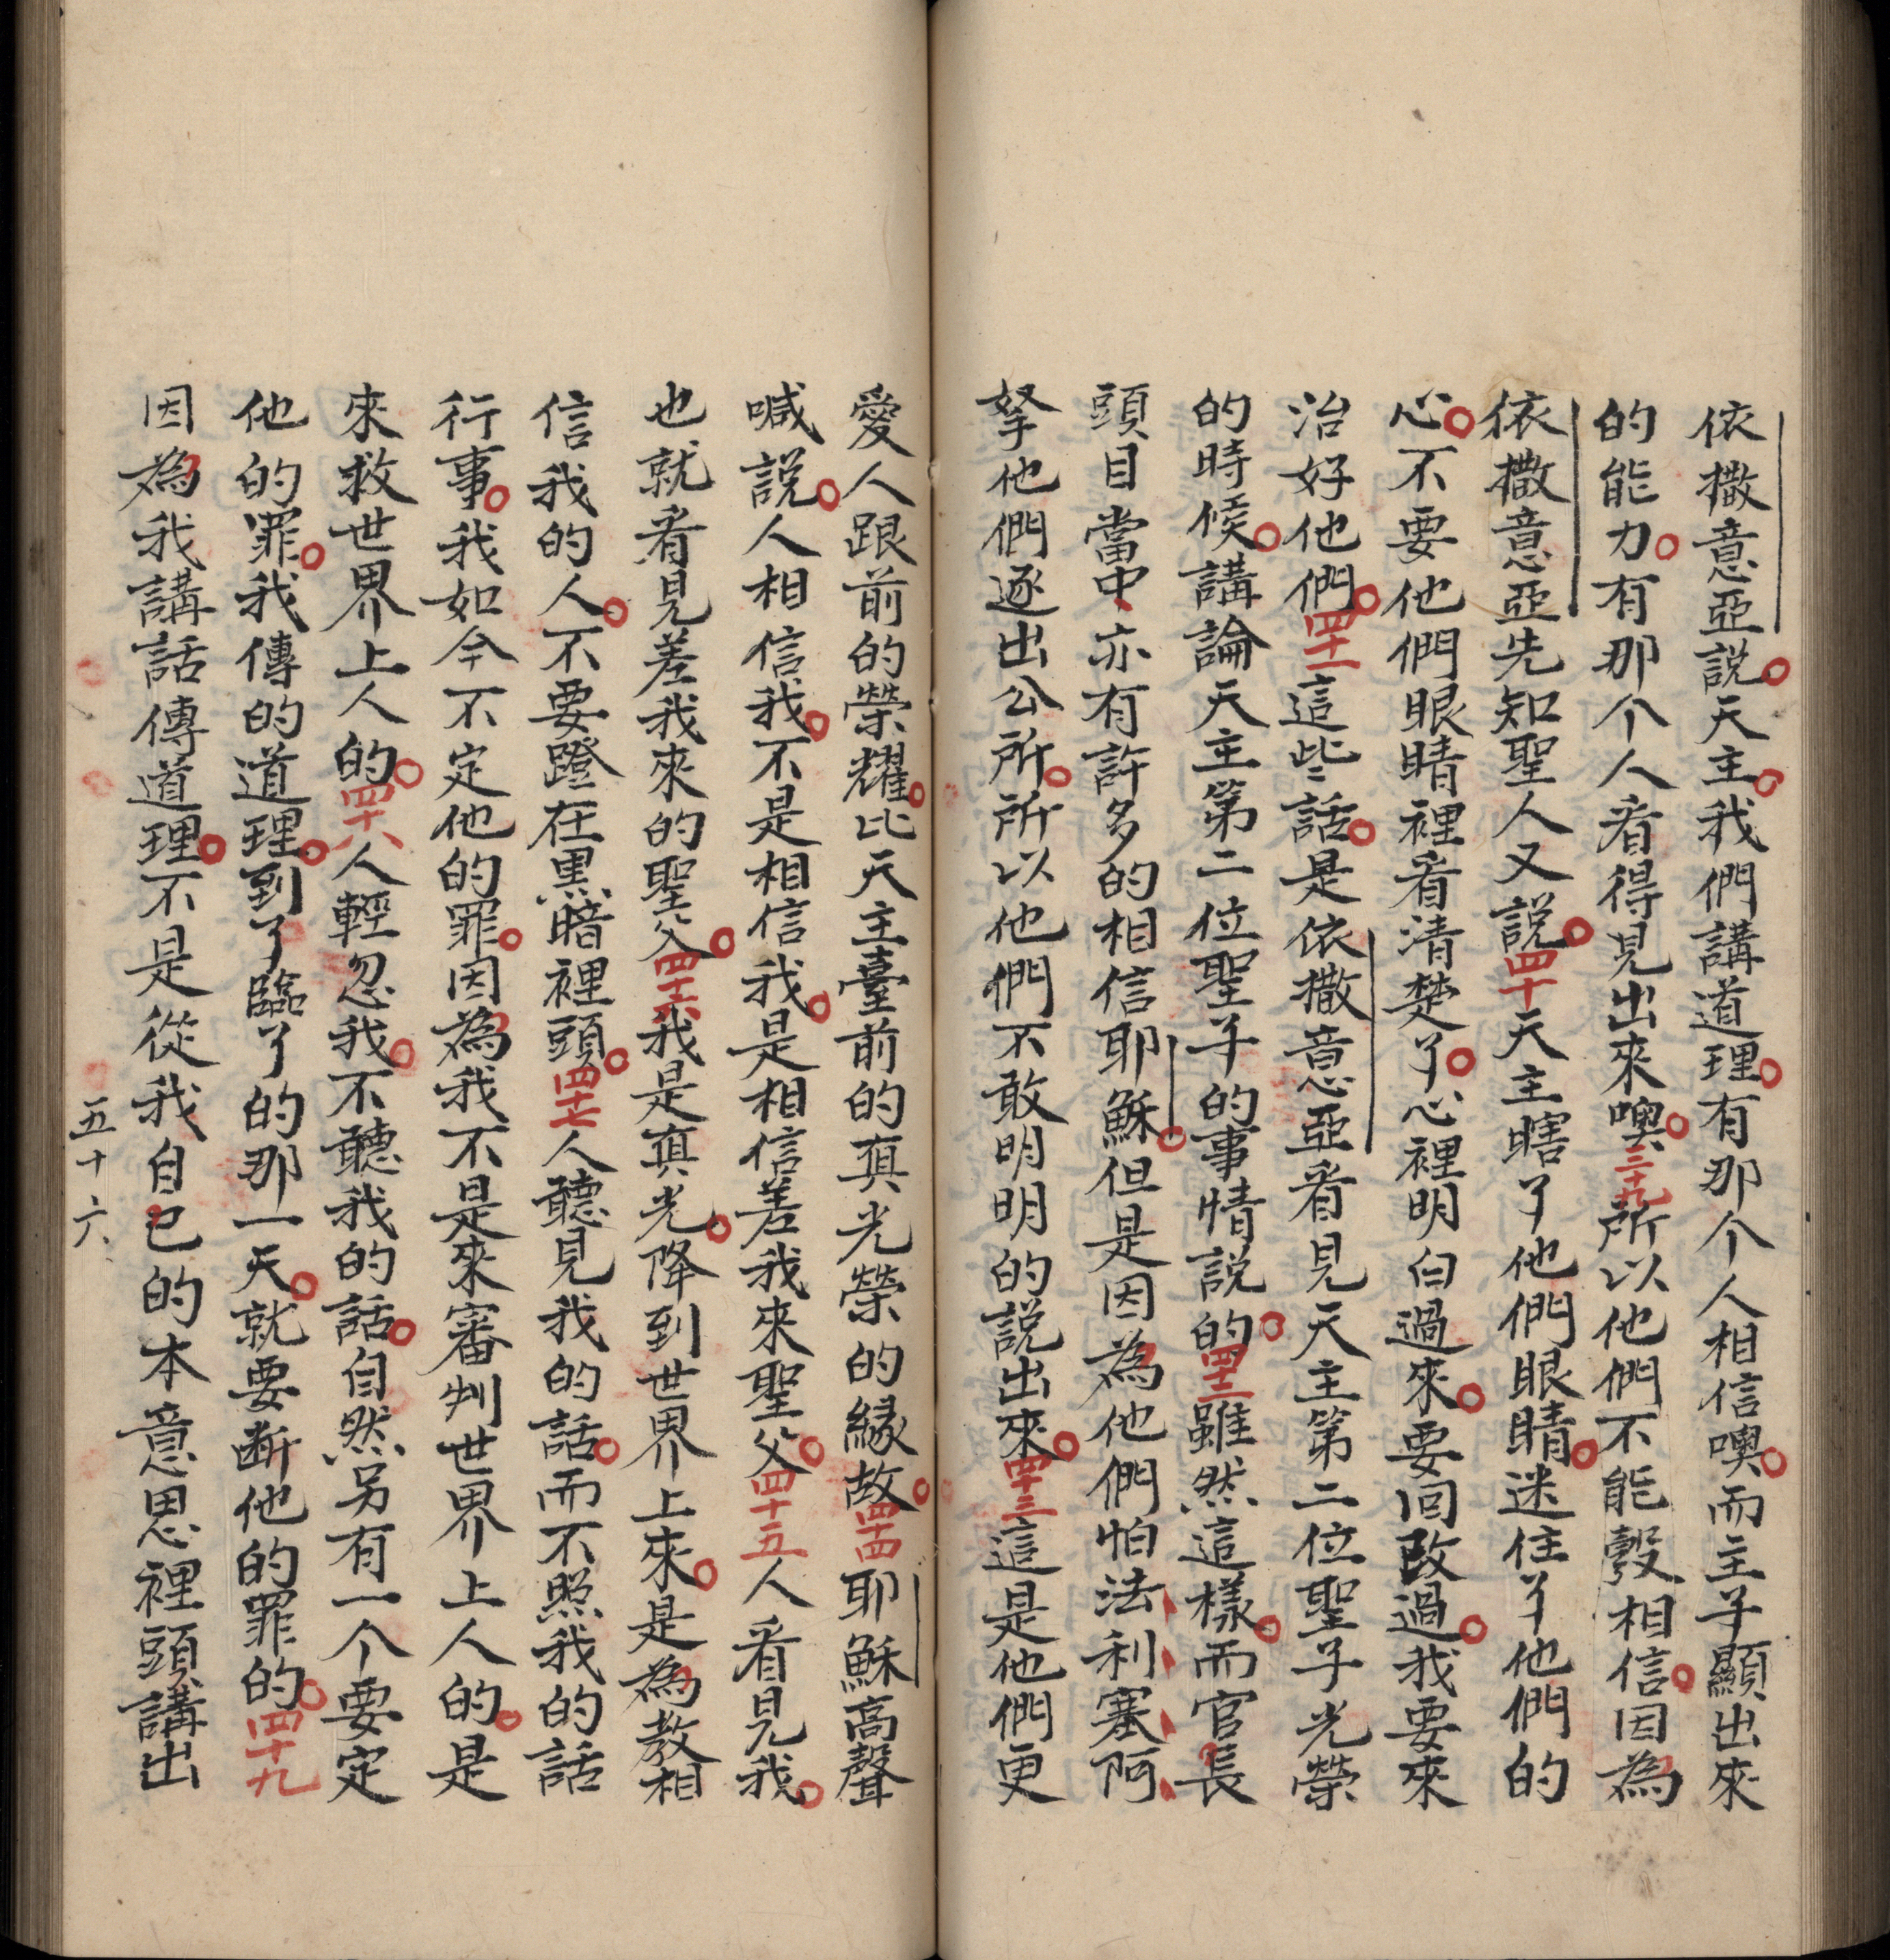 依撒意亞説。天主。我們講道理。有那个人相信噢。而主子顯出來
的能力。有那个人看得見出來噢。三十九所以他們不能彀相信。因為
依撒意亞先知聖人又説。四十天主瞎了他們眼睛。迷住了他們的
心。不要他們眼睛裡看清楚了。心裡明白過來。要回改過。我要來
治好他們。四十一這些話。是依撒意亞看見天主第二位聖子光榮
的時候。講論天主第二位聖子的事情説的。四十二雖然這樣。而官長
頭目當中、亦有許多的相信耶穌。但是因為他們怕法利塞阿
拏他們逐出公所。所以他們不敢明明的説出來。四十三這是他們更
愛人跟前的榮耀。比天主臺前的真光榮的緣故。四十四耶穌高聲
喊説。人相信我。不是相信我。是相信差我來聖父。四十五人看見我。
也就看見差我來的聖父。四十六我是真光。降到世界上來。是為教相
信我的人。不要蹬在黑暗裡頭。四十七人聽見我的話。而不照我的話
行事。我如今不定他的罪。因為我不是來審判世界上人的。是
來救世界上人的。四十八人輕忽我。不聽我的話。自然另有一个要定
他的罪。我傳的道理。到了臨了的那一天。就要断他的罪的。四十九
因為我講話傳道理。不是從我自己的本意思裡頭講出
五十六